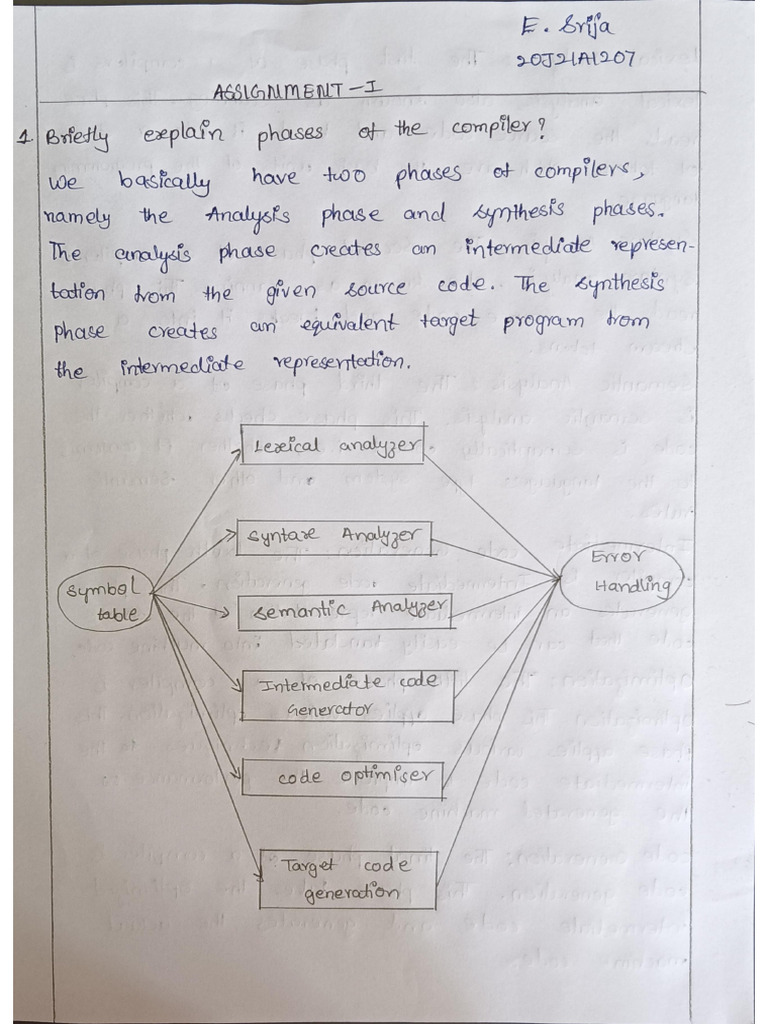 E. Srija
20J21A1207
ASSIGNMENT-I
1. Briefly explain phases of the compiler?
We basically have two phases of compilers,
namely the Analysis phase and synthesis phases.
The analysis phase creates an intermediate represen-
tation from the given source code. The synthesis
phase creates an equivalent target program from
the intermediate representation.
Lexical analyzer
Syntax Analyzer
Error
Handling
Symbol
table
Semantic Analyzer
Intermediate code
Generator
code optimiser
Target code
generation